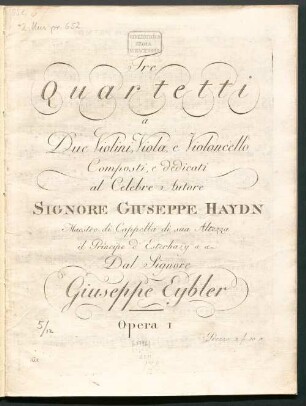 Tre
Quartetti
a
Due Violini, Viola, e Violoncello
Composti, e dedicati
al Celebre Autore
SIGNORE GIUSEPPE HAYDN
Maestro di Cappella di sua Altezza
il Principe d'Esterhazy &. &.
Dal Signore
Giuseppe Eybler
Opera I
5/12